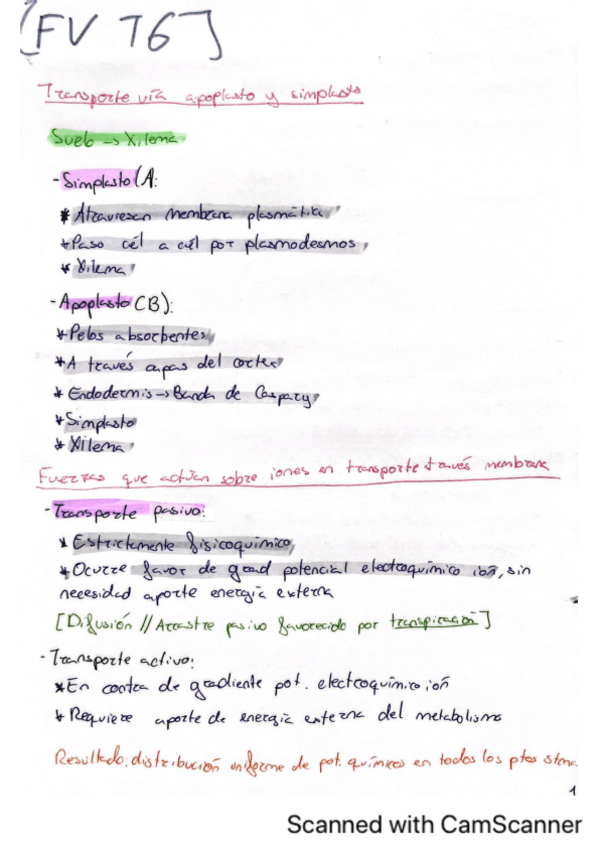 [FV T6]
Transporte vía apoplasto y simplasto
Suelo → Xilema
- Simplasto (A:
* Atraviesan membrana plasmática
* Paso cél a cél por plasmodesmos
* Xilema
- Apoplasto (B):
* Pelos absorbentes
* A través capas del cortex
* Endodermis → Banda de Caspary
* Simplasto
* Xilema
Fuerzas que actúan sobre iones en transporte a través membrana
- Transporte pasivo:
* Estrictamente fisicoquímico
* Ocurre favor de grad potencial electroquímico ión, sin
necesidad aporte energía externa
[Difusión // Arrastre pasivo favorecido por transpiración]
- Transporte activo:
* En contra de gradiente pot. electroquímico ión
* Requiere aporte de energía externa del metabolismo
Resultado: distribución uniforme de pot. químicos en todos los ptos
1
Scanned with CamScanner